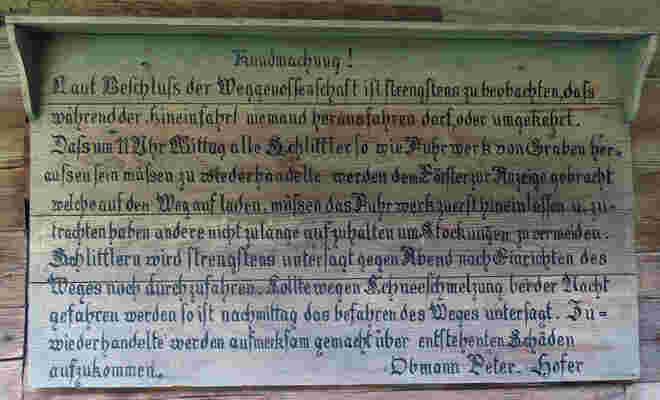 Kundmachung!
Laut Beschluss der Weggenossenschaft ist strengstens zu beobachten, dass
während der Hineinfahrt niemand herausfahren darf, oder umgekehrt.
Dass um 11 Uhr Mittag alle Schlittler so wie Fuhrwerk von Graben her=
aussen sein müssen zu wiederhandelte werden dem Förster zur Anzeige gebracht
welche auf den Weg auf laden, müssen das Fuhrwerk zuerst hineinlassen u. zu-
trachten haben andere nicht zulange aufzuhalten um Stockungen zu vermeiden.
Schlittlern wird strengstens untersagt gegen Abend nach Einrichten des
Weges noch durchzufahren. Sollte wegen Schneeschmelzung bei der Nacht
gefahren werden so ist nachmittag das befahren des Weges untersagt. Zu=
wiederhandelte werden aufmerksam gemacht über entstehenten Schäden
aufzukommen. Obmann Peter. Hofer